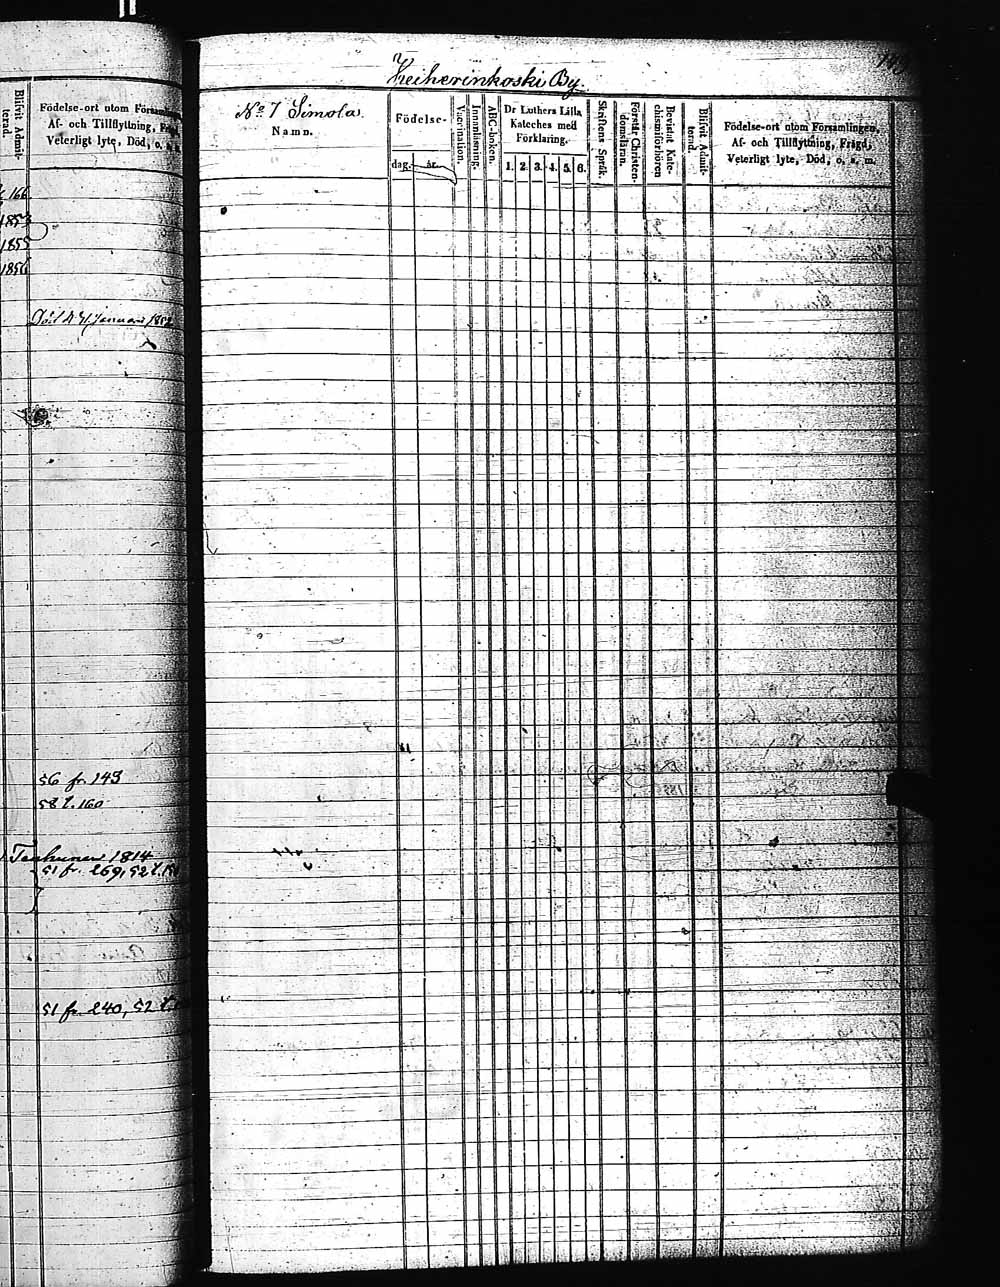 Blifvit Admitterad.
Födelse-ort utom Församlingen,
Af- och Tillflyttning, Frägd,
Veterligt lyte, Död, o. s.
166
1853
1855
1856
Död d. 4/1 Januari 1852
56 fr. 143
58 t. 160
1814
51 fr. 269, 52 t.
51 fr. 240, 52 t.
Keiherinkoski By.
No 7 Simola.
Namn.
Födelse-
dag. år.
Vaccination.
Innanläsning.
ABC-boken.
Dr Luthers Lilla
Kateches med
Förklaring.
1. 2. 3. 4. 5. 6.
Skriftens Språk.
Förstår Christen-
domsläran.
Bevistat Kate-
chismiförhören
Blifvit Admit-
terad.
Födelse-ort utom Församlingen,
Af- och Tillflyttning, Frägd,
Veterligt lyte, Död, o. s. m.